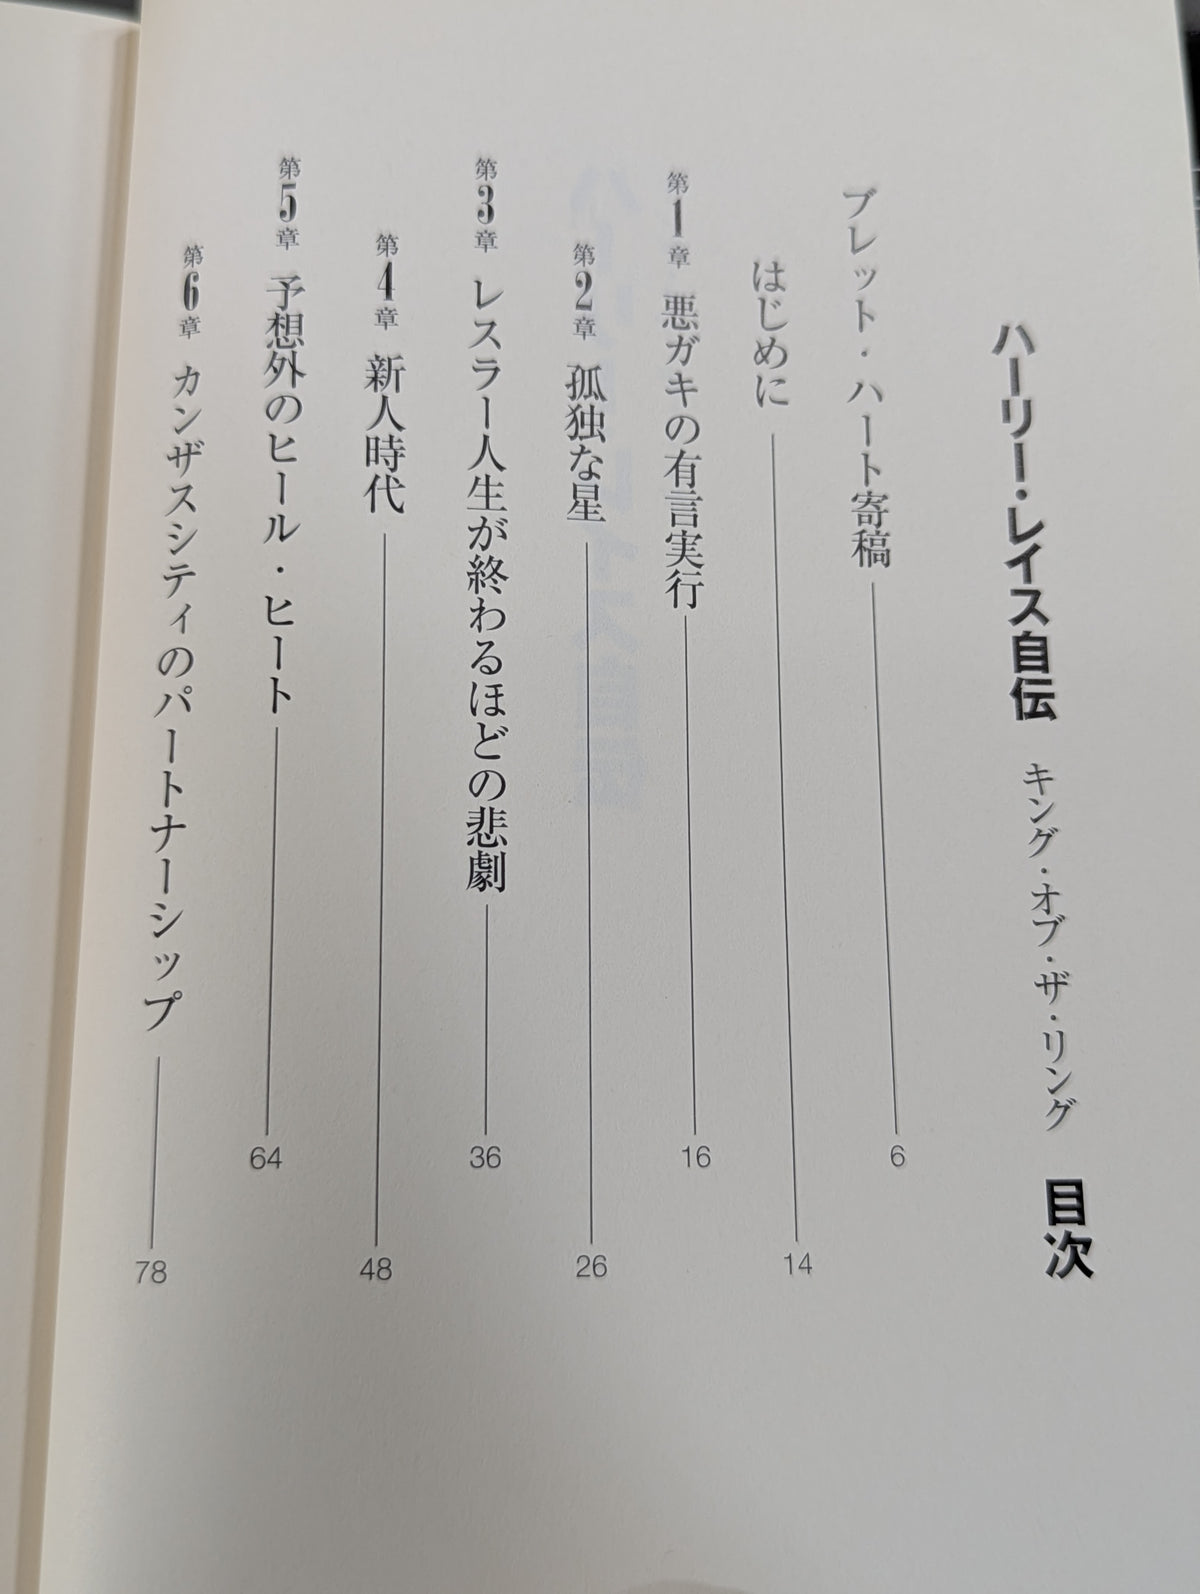 ハーリー・レイス自伝 キング・オブ・ザ・リング 目次
ブレット・ハート寄稿 6
はじめに 14
第1章 悪ガキの有言実行 16
第2章 孤独な星 26
第3章 レスラー人生が終わるほどの悲劇 36
第4章 新人時代 48
第5章 予想外のヒール・ヒート 64
第6章 カンザスシティのパートナーシップ 78